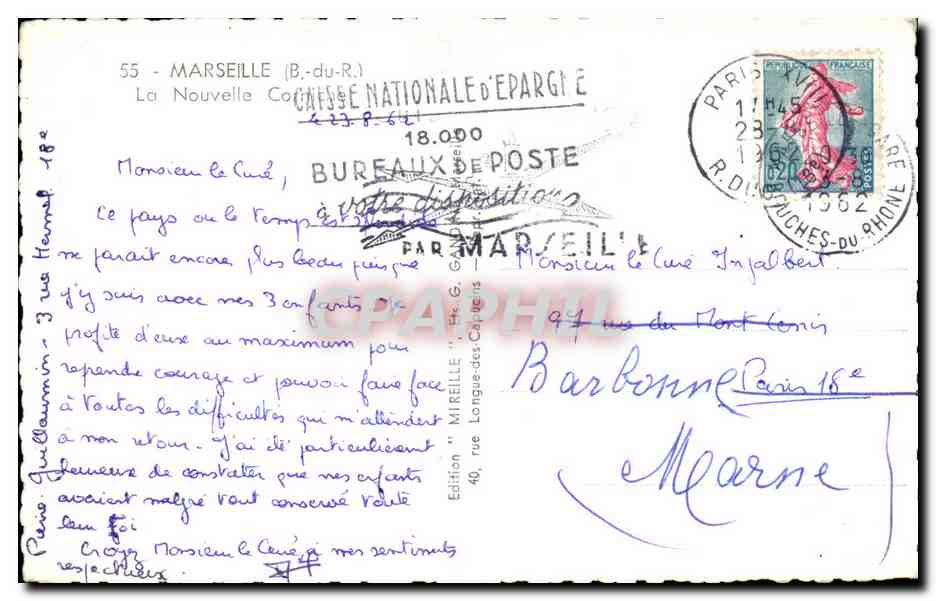 55 - MARSEILLE (B.-du-R.)
La Nouvelle
CAISSE NATIONALE D'EPARGNE
18.000
BUREAUX DE POSTE
à votre disposition
PAR MARSEILLE
le 23.8.62
Monsieur le Curé,
Ce pays où le temps est
me parait encore plus beau puisque
j'y suis avec mes 3 enfants. Je
profite d'eux au maximum pour
reprendre courage et pouvoir faire face
à toutes les difficultés qui m'attendent
à mon retour - J'ai été particulièrement
heureuse de constater que mes enfants
avaient malgré tout conservé toute
leur foi
Croyez Monsieur le Curé à mes sentiments
respectueux.
Guillaumin - 3 rue Hermel 18e
Edition " MIREILLE ", Ets G. GANDINI
40, rue Longue-des-Capucins
CPAPHIL
PARIS XVIII
17H45
28-8
1962
REPUBLIQUE FRANÇAISE
0,20
POSTES
GARE
1962
BOUCHES-DU-RHONE
Monsieur le Curé Injalbert
97 rue du Mont Cenis
Paris 18e
Barbonne
Marne